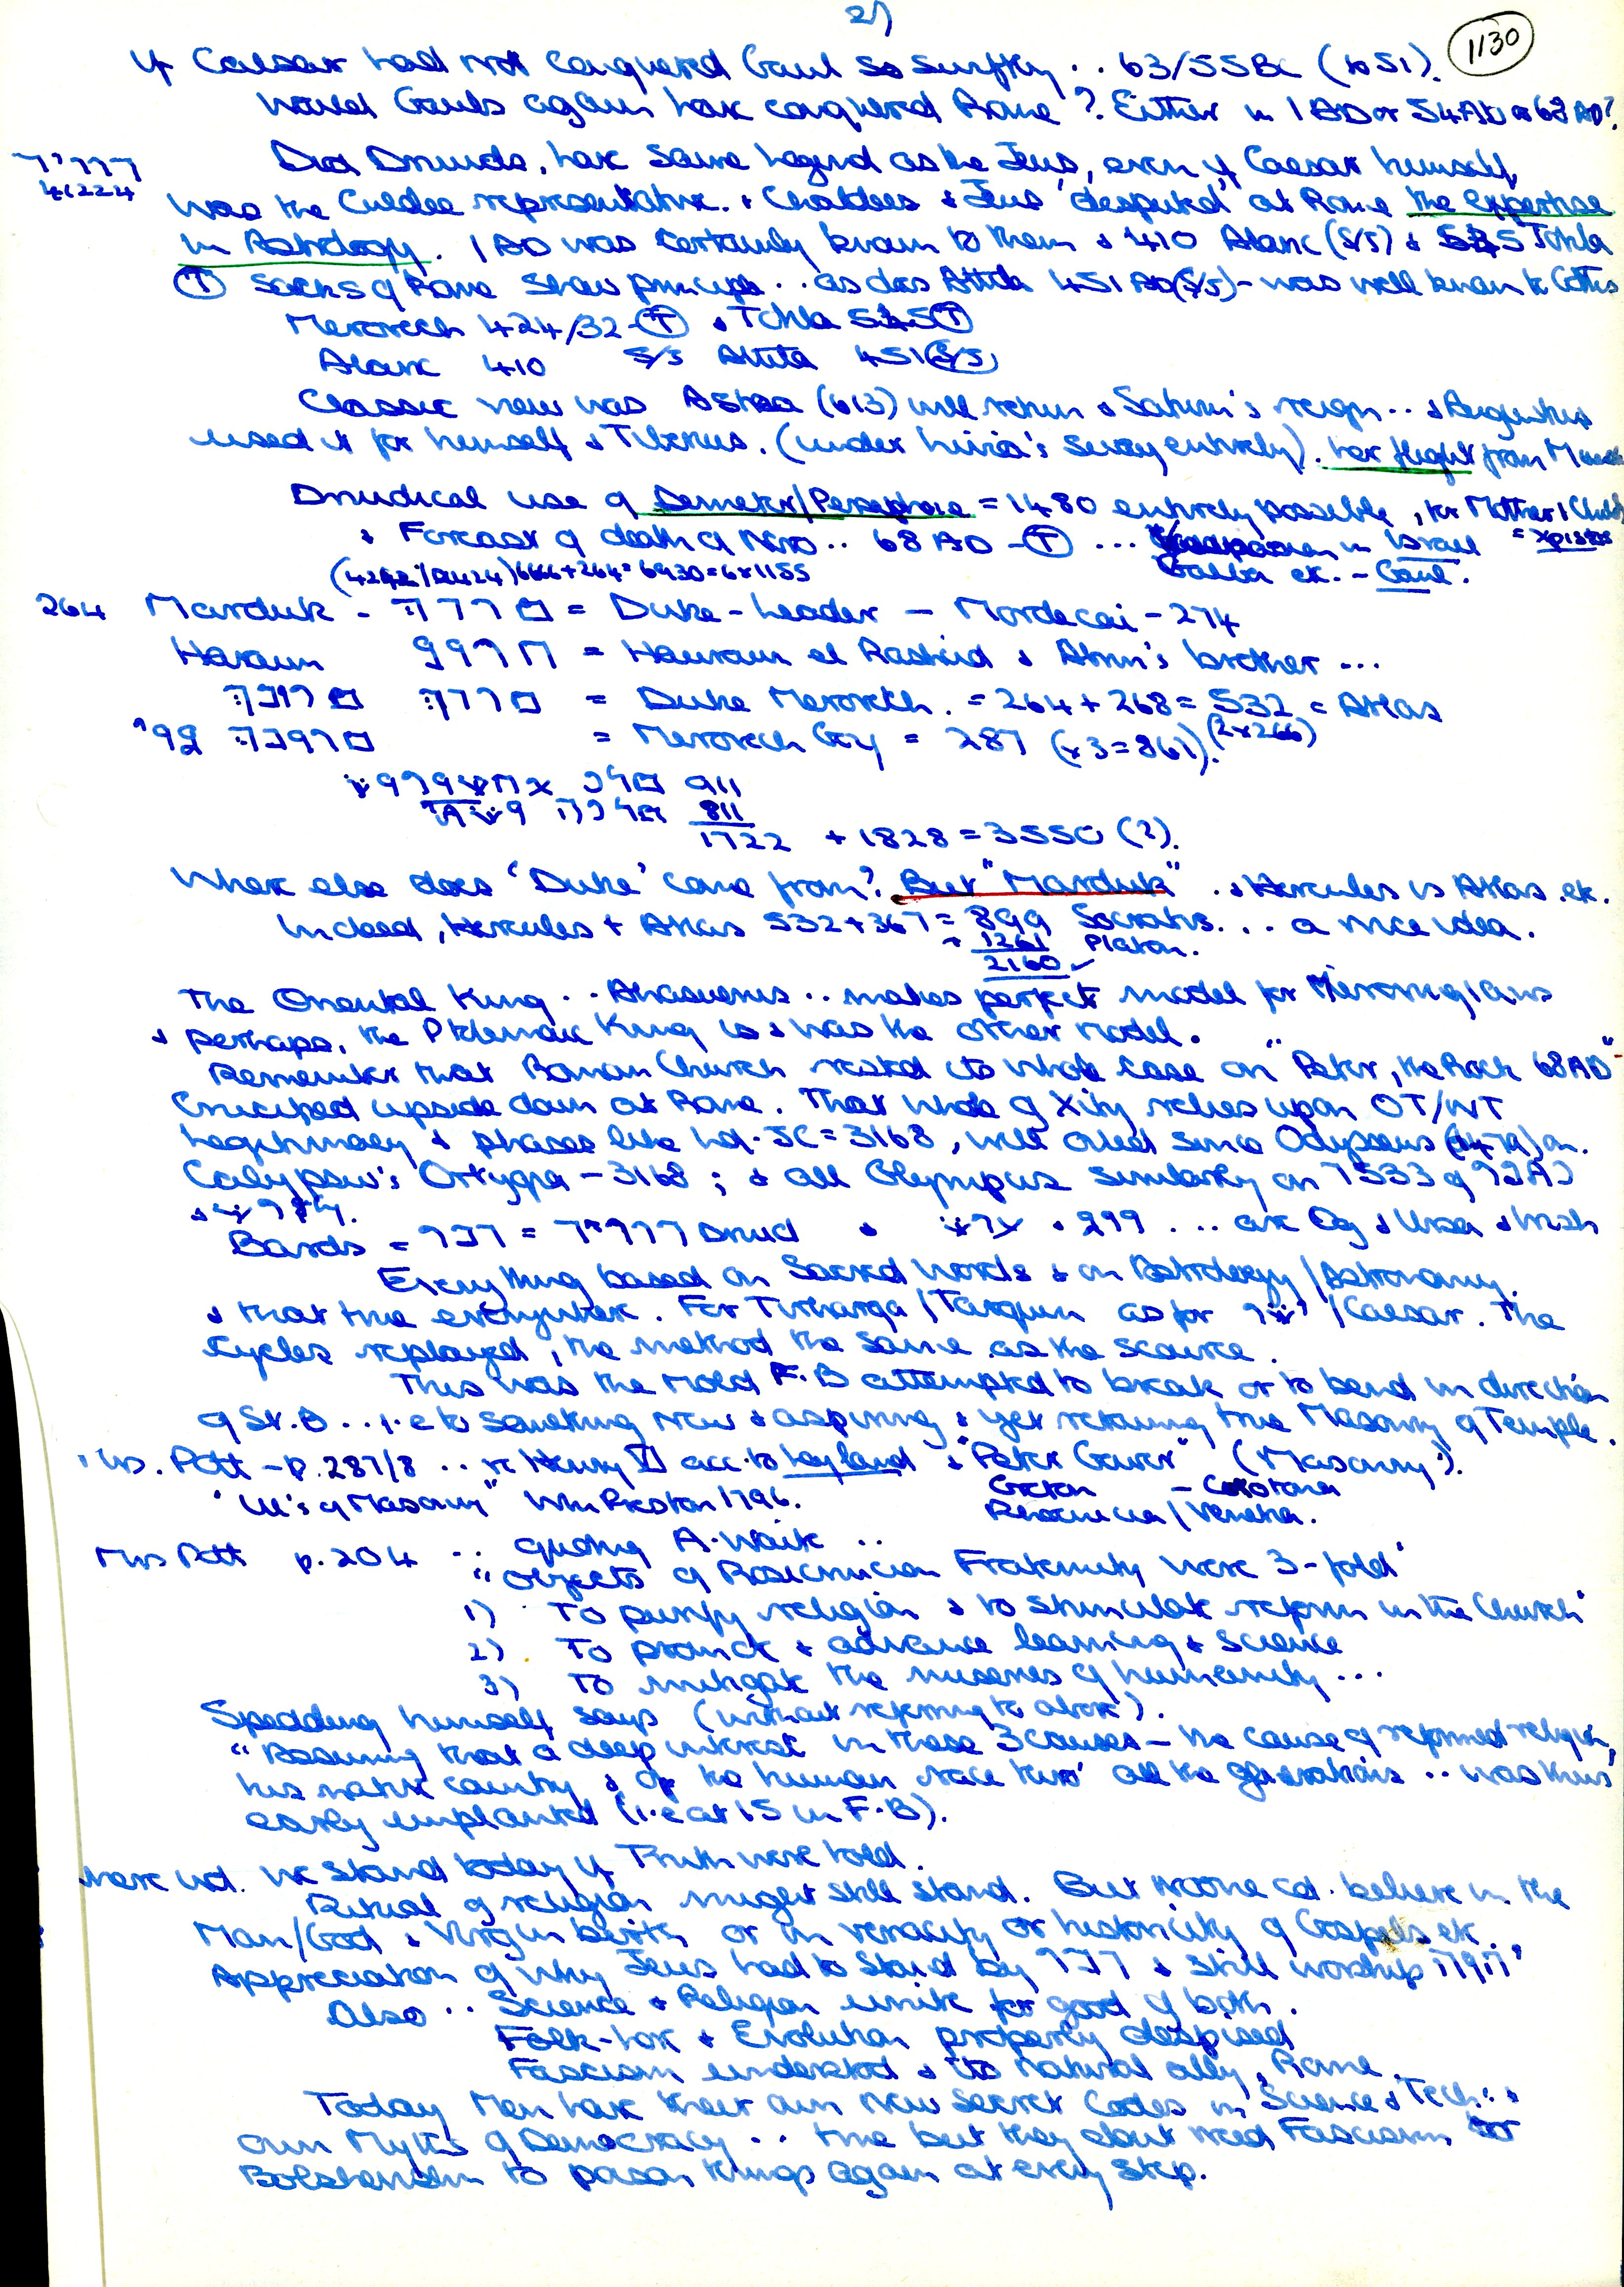 2)
1130
If Caesar had not conquered Gaul so swiftly .. 63/55BC (to 51).
Would Gauls again have conquered Rome? Either in 1 AD or 54 AD or 68 AD?
Did Druids, have same legend as the Jews, even if Caesar himself
was the Culdee representative. & Chaldees & Jews 'disputed' at Rome the expertise
in Astrology. 1 AD was certainly known to them & 410 Alaric (S/S) & 545 Totila
(T) Sacks of Rome show principle .. as does Attila 451 AD (S/S) - was well known to Goths
Merovech 424/32 - (T) & Totila 545 (T)
Alaric 410 S/S Attila 451 (S/S)
Classic view was Astraea (613) will return & Saturn's reign .. & Augustus
used it for himself & Tiberius. (under Livia's sway entirely). her flight from
Druidical use of Demeter/Persephone = 1480 entirely possible, for Mother & Child
& Forecast of death of Nero .. 68 AD - (T) ... in Israel
Galba etc. - Gaul.
6930 = 6x1155
264 Marduk - = Duke - Leader - Mordecai - 274
Haroun = Hauroun el Rashid & Abram's brother ...
= Duke Merovech. = 264 + 268 = 532 = Atlas
= Merovech Guy = 287 (x3 = 861). (2x266)
911
811
1722 + 1828 = 3550 (?).
Where else does 'Duke' come from? But "Marduk" .. & Hercules is Atlas. etc.
Indeed, Hercules + Atlas 532 + 367 = 899 Socrates ... a nice idea.
+ 1261 Platon.
2160 ✓
The Oriental King .. Ahasuerus .. makes perfect model for Merovingians
& perhaps, the Ptolemaic King is & was the other model.
Remember that Roman Church rested its whole case on "Peter, the Rock 68 AD" -
Crucified upside down at Rome. That whole of Xity relies upon OT/NT
legitimacy & phases like Ld. JC = 3168, will avail since Odysseus on
Calypso's Ortygia - 3168 ; & all Olympus similarly on
Bards = = Druid & & 299 ... are Og & Ursa & Irish
Everything based on Sacred Words & on Astrology/Astronomy.
& that true everywhere. For Tirharqa/Tarquin as for /Caesar. The
cycles replayed, the method the same as the source.
This was the Mold F.B attempted to break or to bend in direction
of St. B .. i.e to something new & aspiring & yet retaining true Masonry of Temple.
Mrs. Pott - p. 287/8 .. re Henry VI acc. to Leyland & "Peter Gower" (Masonry).
"Ill's of Masonry" Wm Preston 1796.
Groton - Crotona
Phoenicia / Venetia.
Mrs Pott p. 204 .. quoting A. Waite ..
"Objects of Rosicrucian Fraternity were 3-fold'
1) To purify religion & to stimulate reform in the Church'
2) To promote & advance learning & science
3) To mitigate the miseries of humanity ...
Spedding himself says (without referring to above).
"Assuming that a deep interest in these 3 causes - the cause of reformed religion,
his native country & of the human race thro' all the generations .. was thus
early implanted (i.e at 15 in F.B).
Where wd. we stand today if Truth were told.
Ritual of religion might still stand. But no one cd. believe in the
Man/God & Virgin birth or in veracity or historicity of Gospels etc.
Appreciation of why Jews had to stand by & still worship
Also .. Science & Religion unite for good of both.
Folk-lore & Evolution properly despised
Fascism understood & its natural ally, Rome.
Today Men have their own new Secret Codes in Science & Tech: &
own Myths of Democracy .. true but they dont need Fascism or
Bolshevism to poison things again at every step.